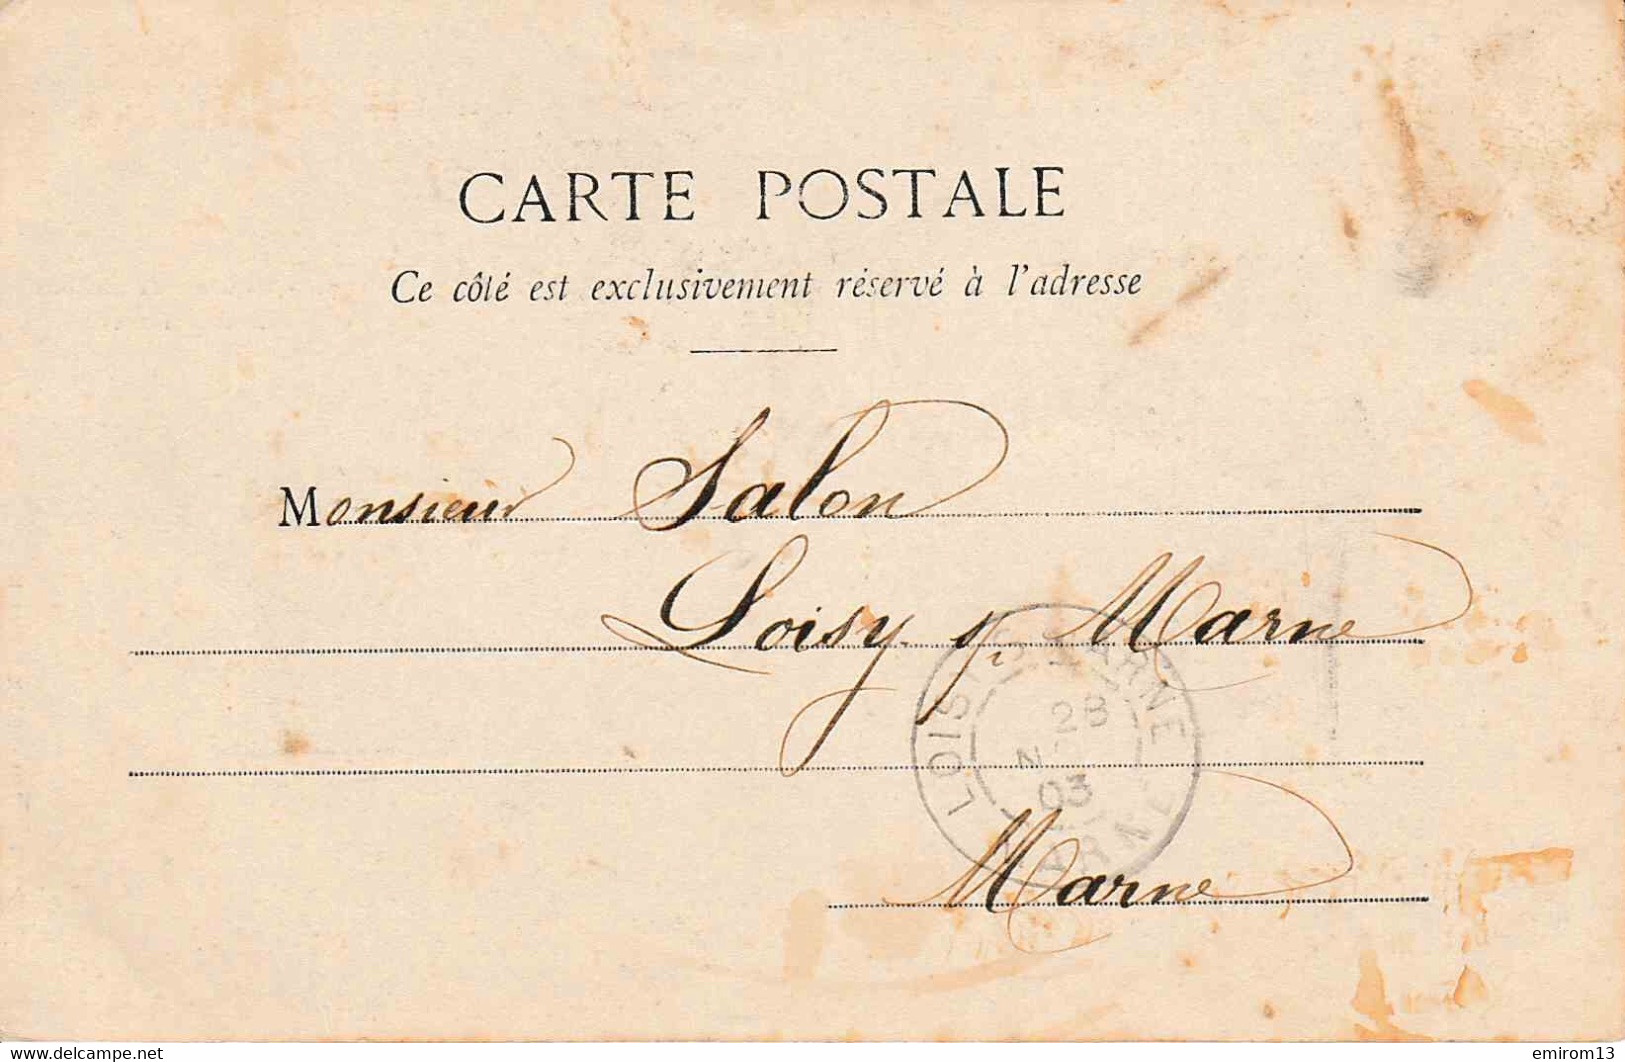 CARTE POSTALE
Ce côté est exclusivement réservé à l'adresse
Monsieur Salon
Loisy s/ Marne
LOISY-S-MARNE
28
03
MARNE
Marne
www.delcampe.net
emirom13